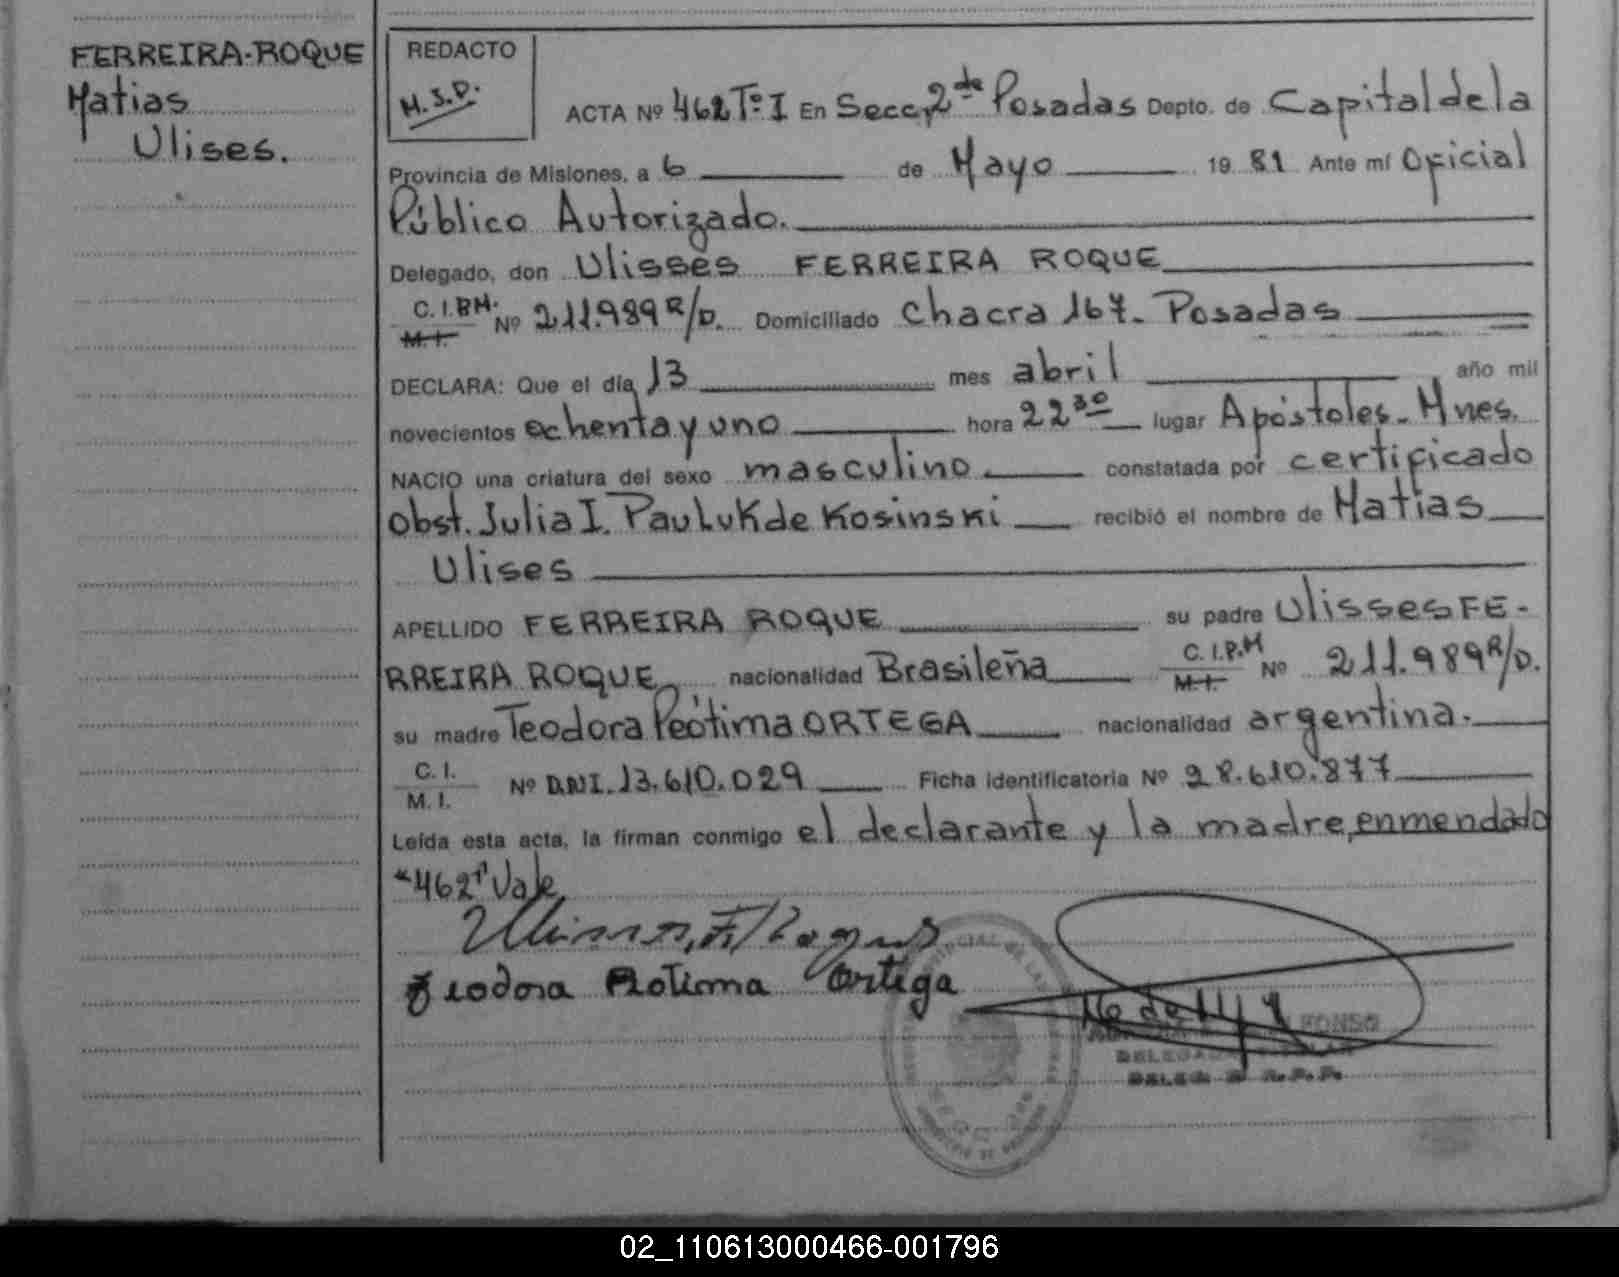 FERREIRA-ROQUE
Matias
Ulises.
REDACTO
M.S.D.
ACTA Nº 462 Tº I En Secc. 2da Posadas Depto. de Capital de la
Provincia de Misiones, a 6 de Mayo 19 81 Ante mí Oficial
Público Autorizado.
Delegado, don Ulisses FERREIRA ROQUE
C.I.P.M. M.I. Nº 211.989 R/D. Domiciliado Chacra 167- Posadas
DECLARA: Que el día 13 mes abril año mil
novecientos ochenta y uno hora 22 30 lugar Apóstoles- Mnes.
NACIO una criatura del sexo masculino constatada por certificado
Obst. Julia I. Pauluk de Kosinski recibió el nombre de Matias
Ulises
APELLIDO FERREIRA ROQUE su padre Ulisses FE-
RREIRA ROQUE nacionalidad Brasileña C.I.P.M M.I. Nº 211.989 R/D.
su madre Teodora Peótima ORTEGA nacionalidad argentina.
C. I. M. I. Nº D.N.I. 13.610.029 Ficha identificatoria Nº 28.610.877
Leída esta acta, la firman conmigo el declarante y la madre, enmendado
"462" Vale
Teodora Ortega
DELEG
02_110613000466-001796